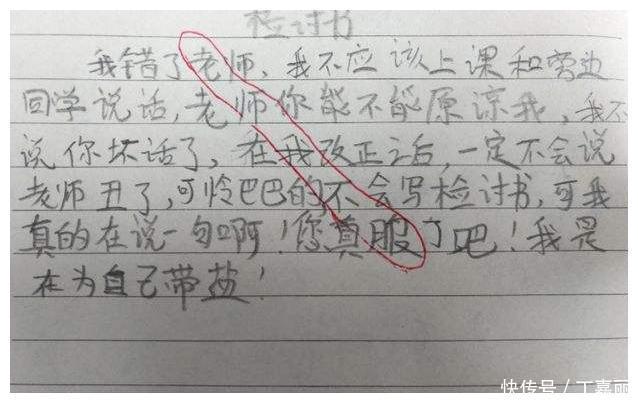 检讨书
我错了老师，我不应该上课和旁边
同学说话，老师你能不能原谅我，我不
说你坏话了，在我改正之后，一定不会说
老师丑了，可怜巴巴的不会写检讨书，可我
真的在说一句啊！您真服了吧！我是
在为自己带盐！
快传号／丁嘉丽